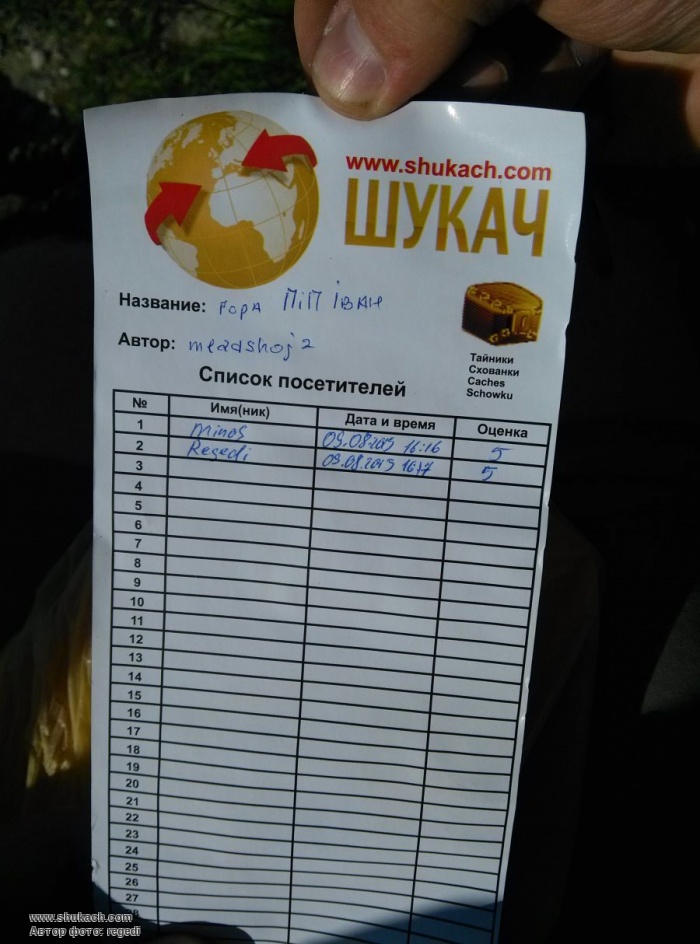 www.shukach.com
ШУКАЧ
Название: гора ПіП іван
Автор: meadshoj2
Тайники
Сховки
Caches
Schowku
Список посетителей
№ Имя(ник) Дата и время Оценка
1 minos 09.08.2015 16:16 5
2 Regedi 09.08.2015 16:17 5
3
4
5
6
7
8
9
10
11
12
13
14
15
16
17
18
19
20
21
22
23
24
25
26
27
28
www.shukach.com
Автор фото: regedi